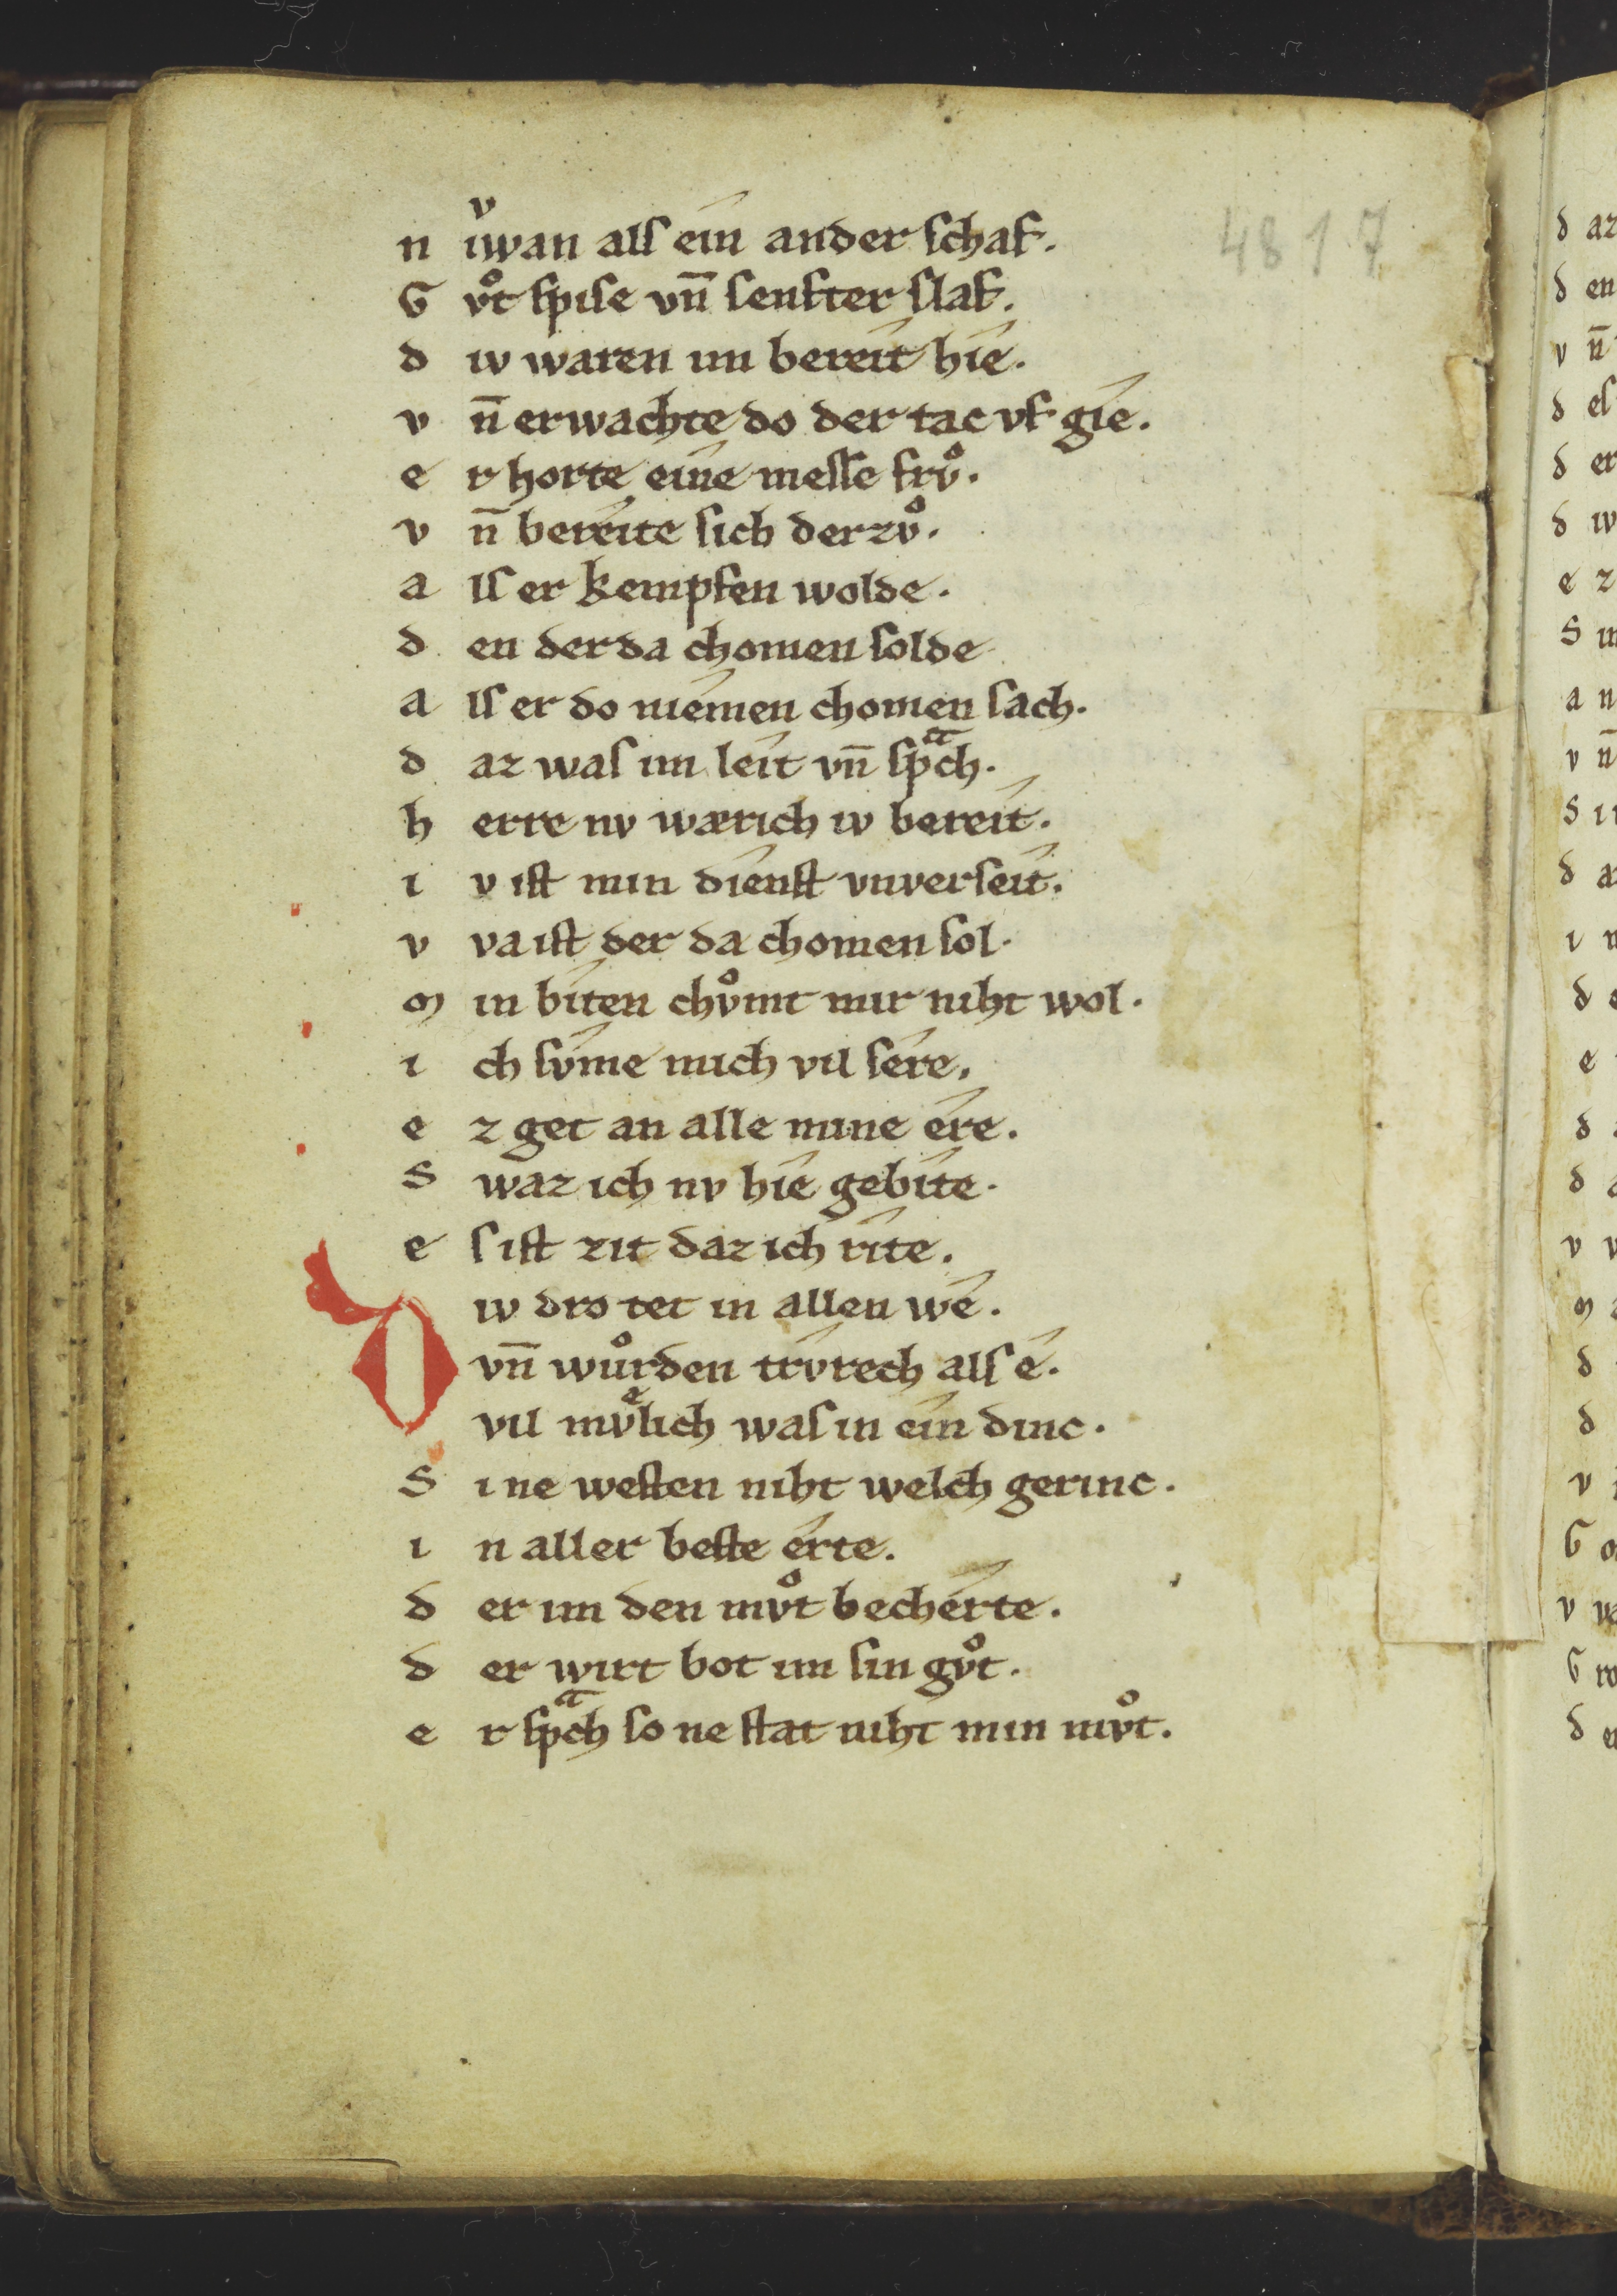 4817
n iͮwan alſ ein ander ſchaf.
G vͦt ſpiſe vn̄ ſenfter ſlaf.
d iv waren im bereit hie.
v n̄ erwachte do der tac vf gie.
e r horte eine meſſe frvͦ.
v n̄ bereite ſich der zvͦ.
a lſ er kempfen wolde.
d en der da chomen ſolde
a lſ er do niemen chomen ſach.
d az waſ im leit vn̄ ſpͣch.
h erre nv wærich iv bereit.
i v iſt min dienſt vnverſeit.
v va iſt der da chomen ſol.
m in biten chvͦmt mir niht wol.
i ch ſvme mich vil ſere.
e z get an alle mine ere.
S waz ich nv hie gebite.
e ſ iſt zit daz ich rite.
D iv dro tet in allen we.
vn̄ wuͦrden trvrech alſ e.
vil mvͤlich waſ in ein dinc.
S i ne weſten niht welch gerinc.
i n aller beſte erte.
d er im den mvͦt becherte.
d er wirt bot im ſin gvͦt.
e r ſpͣch ſo ne ſtat niht min mvͦt.